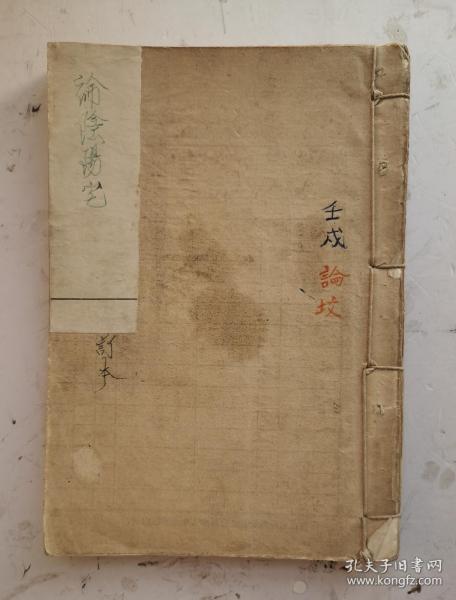 論陰陽宅
訂本
壬戌 論坟
孔夫子旧书网
www.kongfz.com